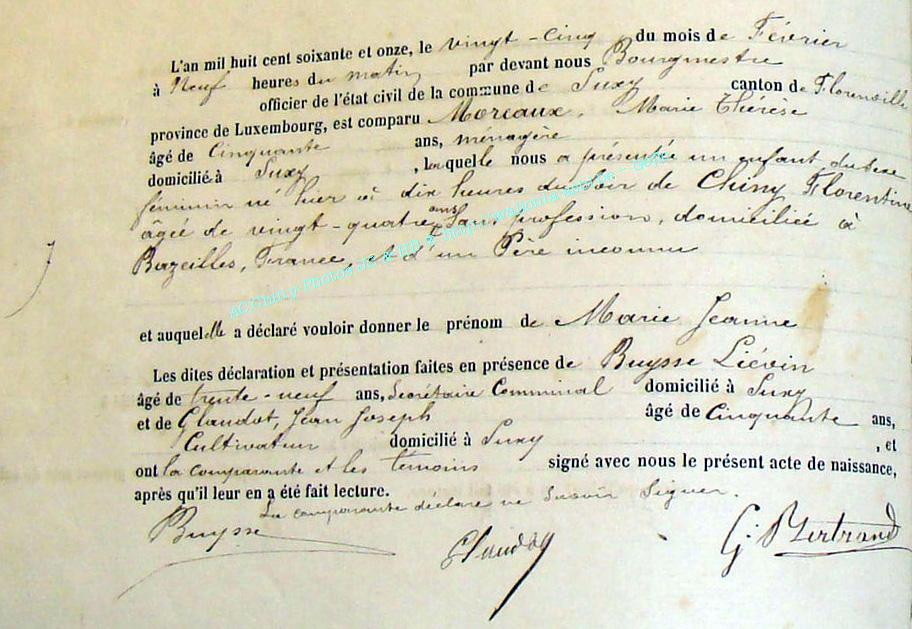 L'an mil huit cent soixante et onze, le vingt-cinq du mois de Février
à Neuf heures du matin par devant nous Bourgmestre
officier de l'état civil de la commune de Suxy canton de Florenville
province de Luxembourg, est comparu Moreaux, Marie Thérèse
âgé de Cinquante ans, ménagère
domicilié à Suxy, laquelle nous a présentée un enfant du sexe
féminin né hier à dix heures du soir de Chiny Florentine
âgée de vingt-quatre ans, sans profession, domiciliée à
Bazeilles, France, et d'un Père inconnu
et auquelle a déclaré vouloir donner le prénom de Marie Jeanne
Les dites déclaration et présentation faites en présence de Buysse Liévin
âgé de trente-neuf ans, Secrétaire Communal domicilié à Suxy
et de Glaudot, Jean Joseph âgé de Cinquante ans,
Cultivateur domicilié à Suxy, et
ont la comparante et les témoins signé avec nous le présent acte de naissance,
après qu'il leur en a été fait lecture.
La comparante déclare ne savoir signer.
Buysse Glaudot G. Bertrand